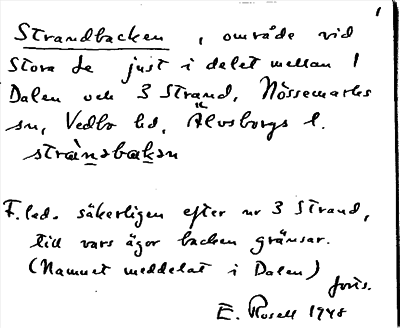 1
Strandbacken, område vid
Stora Le just i delet mellan 1
Dalen och 3 Strand, Nössemarks
sn, Vedbo hd, Älvsborgs l.
strànsbakən
F.led. säkerligen efter nr 3 Strand,
till vars ägor backen gränsar.
(Namnet meddelat i Dalen)
forts.
E. Rosell 1948